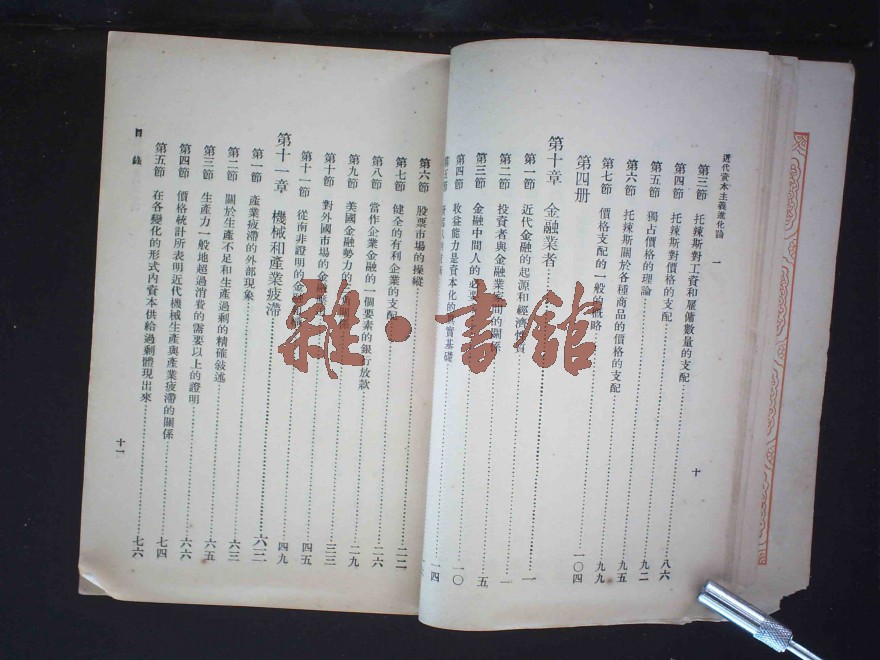 近代資本主義進化論 一
第三節 托辣斯對工資和雇傭數量的支配 八六
第四節 托辣斯對價格的支配
第五節 獨占價格的理論 九二
第六節 托辣斯關於各種商品的價格的支配 九五
第七節 價格支配的一般的概略 九九
第四册 一〇四
第十章 金融業者 一
第一節 近代金融的起源和經濟性質 一
第二節 投資者與金融業者間的關係
第三節 金融中間人的必要 五
第四節 收益能力是資本化的實基礎 一〇
一四
十
第六節 股票市場的操縱
第七節 健全的有利企業的支配 二二
第八節 當作企業金融的一個要素的銀行放款 二六
第九節 美國金融勢力的 二九
第十節 對外國市場的金融 三三
第十一節 從南非證明的金融 四五
第十一章 機械和產業疲滯 四九
第一節 產業疲滯的外部現象 六三
第二節 關於生產不足和生產過剩的精確敍述 六三
第三節 生產力一般地超過消費的需要以上的證明 六五
第四節 價格統計所表明近代機械生產與產業疲滯的關係 六六
第五節 在各變化的形式內資本供給過剩體現出來 七四
七六
目錄
十一
雜·書館